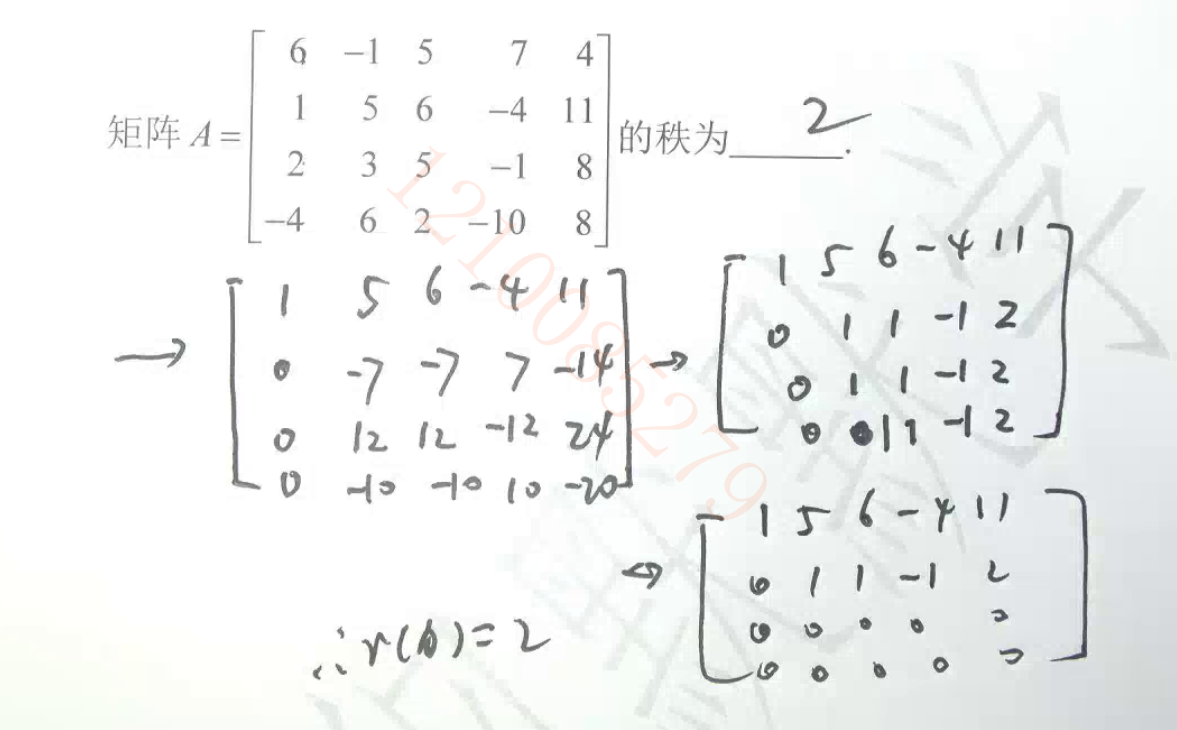 矩阵 A = [ 6 −1 5 7 4 ] 的秩为 2 .
1 5 6 −4 11
2 3 5 −1 8
−4 6 2 −10 8
→ [ 1 5 6 -4 11 ]
0 -7 -7 7 -14
0 12 12 -12 24
0 -10 -10 10 -20
→ [ 1 5 6 -4 11 ]
0 1 1 -1 2
0 1 1 -1 2
0 1 1 -1 2
⇔ [ 1 5 6 -4 11 ]
0 1 1 -1 2
0 0 0 0 0
0 0 0 0 0
∴ r(A) = 2
1210085279